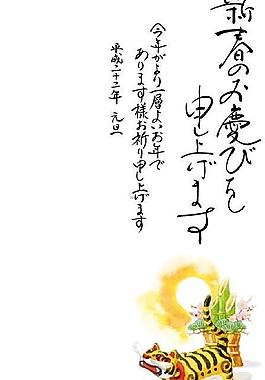 新春のお慶びを
申し上げます
今年がより一層よいお年で
あります様お祈り申し上げます
平成二十二年 元旦